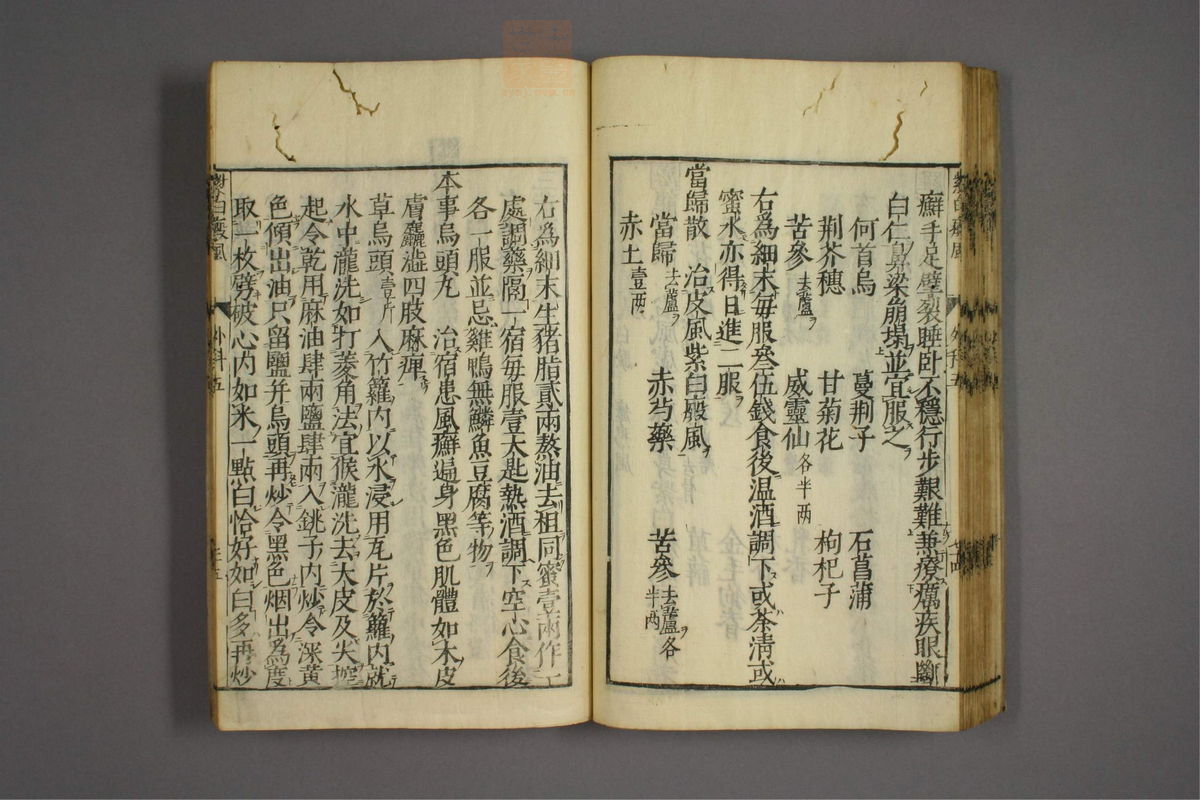 癬手足壁裂睡卧不穩行步艱難兼療癘疾眼斷
白仁鼻梁崩塌並宜服之
何首烏 蔓荆子 石菖蒲
荆芥穗 甘菊花 枸杞子
苦參去蘆 威靈仙各半两
右爲細末每服叄伍錢食後温酒調下或茶清或
蜜水亦得日進二服
當歸散 治皮風紫白癜風
當歸去蘆 赤芍藥 苦參去蘆各半两
赤土壹两
外科五
右爲細末生猪脂貳兩熬油去粗同蜜壹兩作一
處調藥閣一宿每服壹大匙熱酒調下空心食後
各一服並忌雞鴨無鱗魚豆腐等物
本事烏頭丸 治宿患風癬遍身黑色肌體如木皮
膚麤澁四肢麻痹
草烏頭壹斤 入竹籮内以水浸用瓦片於籮内就
水中灑洗如打菱角法宜候灑洗去大皮及尖控
起令乾用麻油肆兩鹽肆兩入銚子内炒令深黄
色傾出油只留鹽并烏頭再炒令黑色烟出爲度
取一枚劈破心内如米一點白恰好如白多再炒
外科五